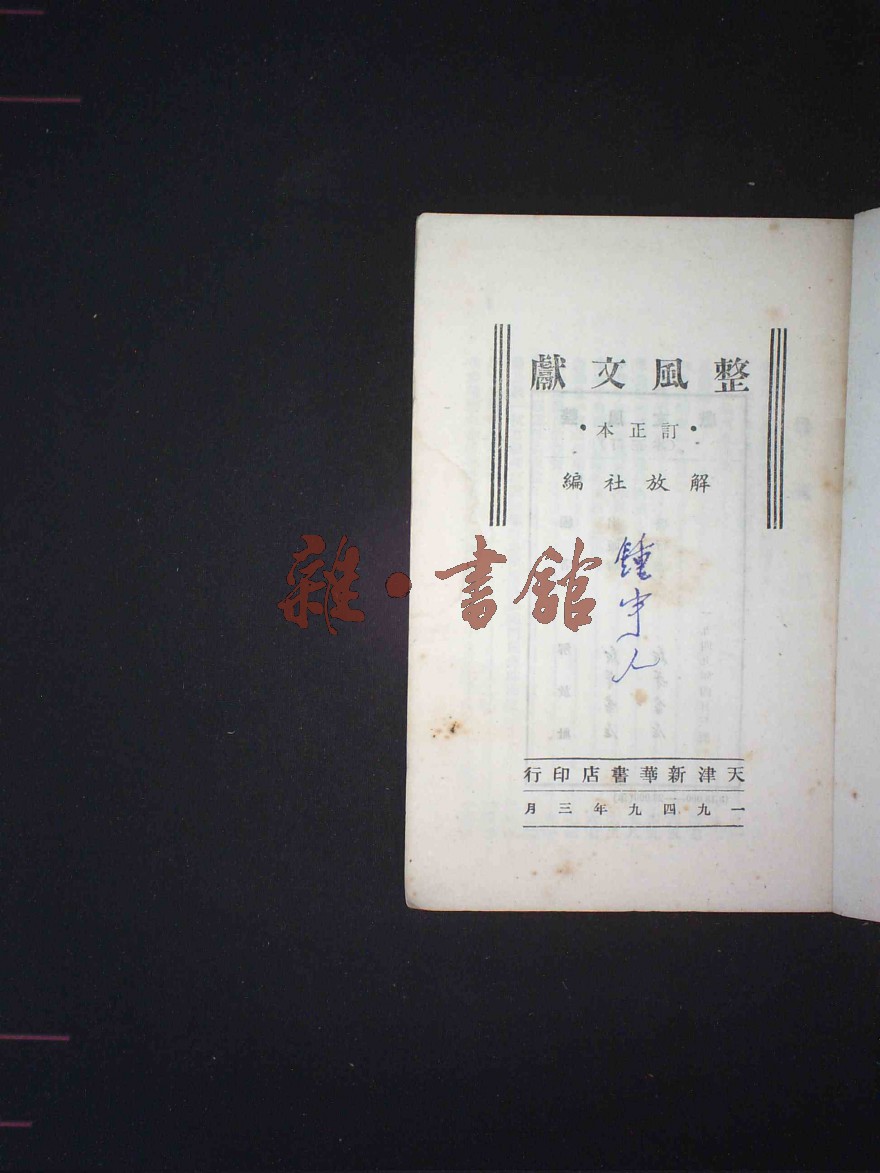 整風文獻
•訂正本•
解放社編
鍾宇人
雜•書館
天津新華書店印行
一九四九年三月